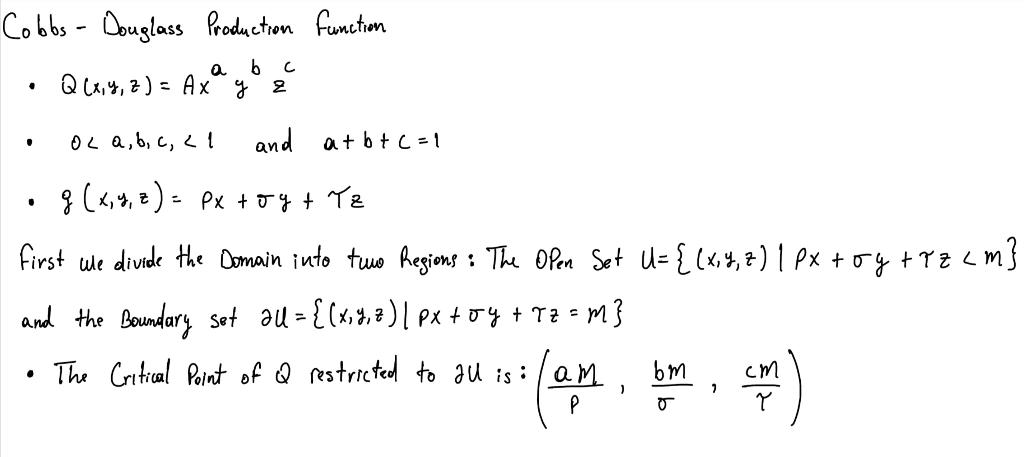 Cobbs - Douglass Production function
• Q(x,y,z) = Ax^a y^b z^c
• 0 < a,b,c, < 1 and a + b + c = 1
• g(x,y,z) = ρx + σy + τz
first we divide the Domain into two Regions : The Open Set U = {(x,y,z) | ρx + σy + τz < m}
and the Boundary set ∂U = {(x,y,z) | ρx + σy + τz = m}
• The Critical Point of Q restricted to ∂U is : (am/ρ, bm/σ, cm/τ)